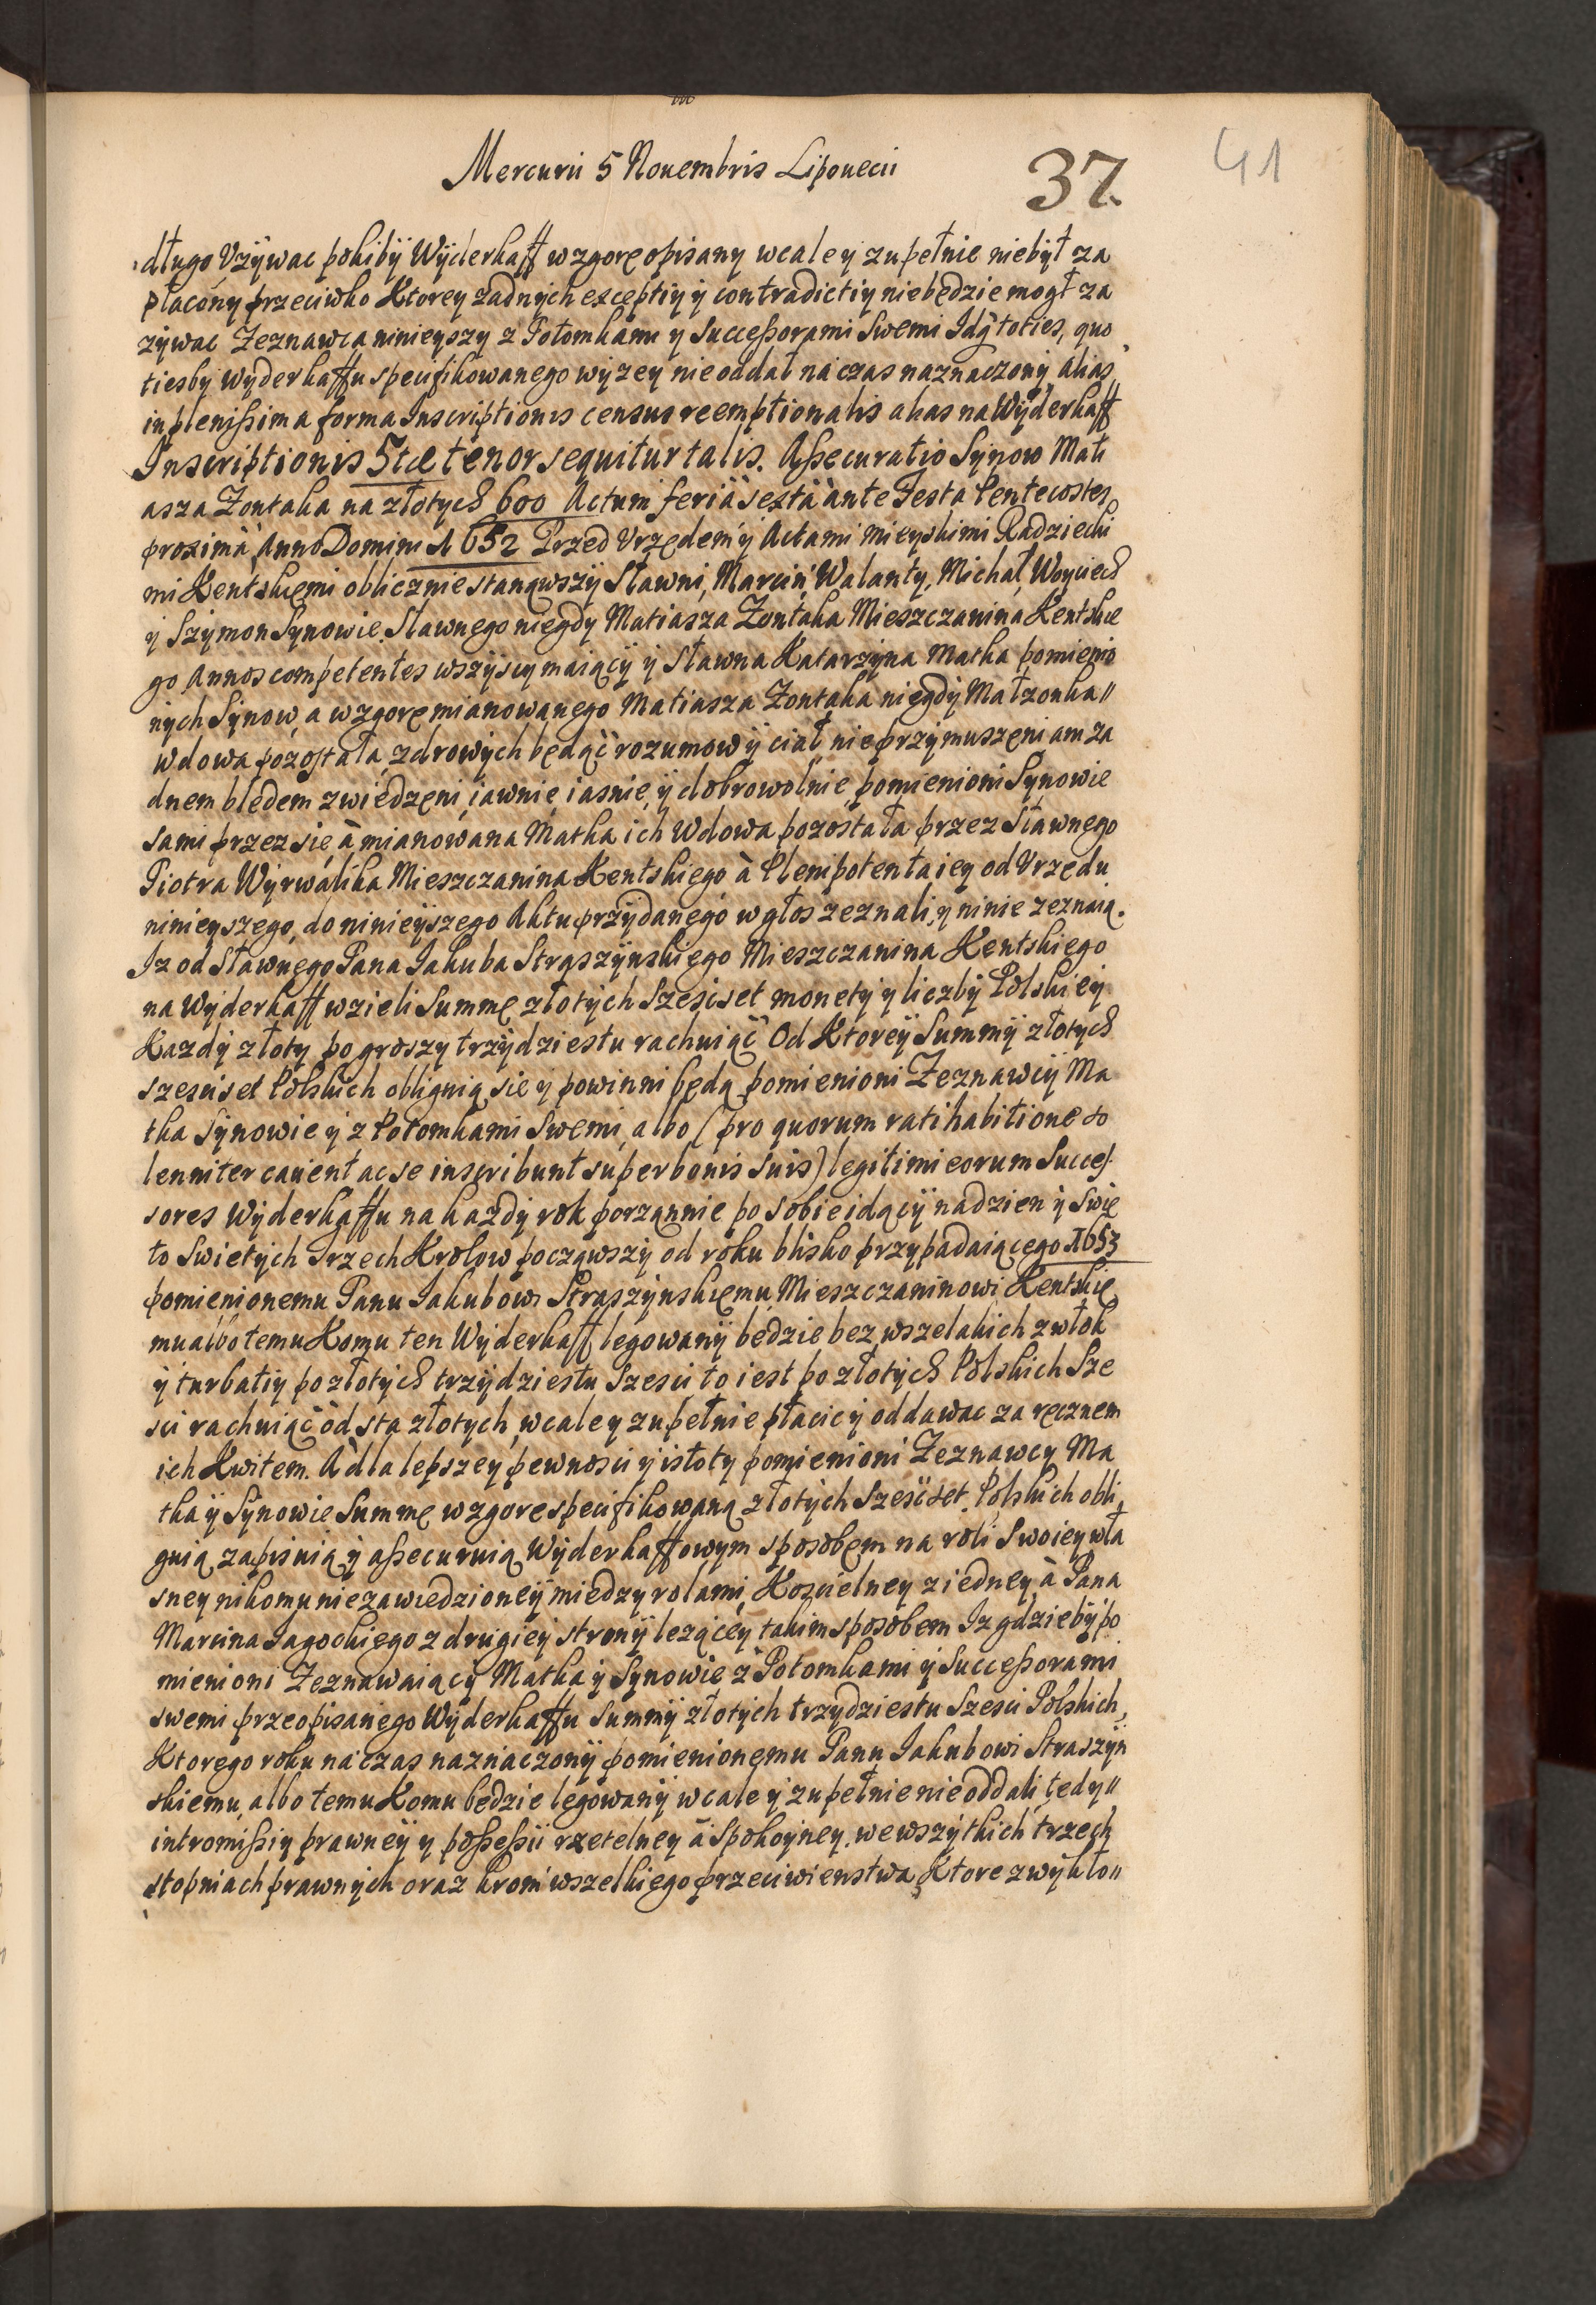 Mercurii 5 Nouembris Lipouecii
37.
41
długo Vzÿwac pokibÿ Wÿderkaff wzgorę opisany wcale ÿ zupełnie niebÿł za
płacony przeciwko Ktorey żadnÿch exceptiÿ ÿ contradictiÿ niebędzie mogł za
zÿwac Zeznawca ninieÿszy z Potomkami y Succeßorami Swemi Idq toties, quo
tiesbÿ Wÿderkaffu specifikowanego wÿzeÿ nieoddał na czas naznaczonÿ alias
in plenißima forma Inscriptionis census reemptionalis alias na Wÿderkaff
Inscriptionis 5tæ tenor sequitur talis. Aßecuratio Sÿnow Mati
asza Zontaka na złotych 600 Actum feriâ sextâ ante Festa Pentecostes
proximâ, Anno Domini 1652 Przed Vrzędem ÿ Actami Mieyskimi Radziecki
mi Kentskiemi oblicznie stanąwszÿ Sławni, Marcin, Walanty, Michał, Woyciech
ÿ Szÿmon Sÿnowie Sławnego niegdy Matiasza Zontaka Mieszczanina Kentskie
go Annos competentes wszÿscy maiącÿ ÿ Sławna Katarzÿna Matka pomienio
nÿch Sÿnow, a wzgorę mianowanego Matiasza Zontaka niegdÿ Małzonka
Wdowa pozostała, zdrowÿch będąc rozumow ÿ ciał nieprzÿmuszeni am za
dnem błedem zwiedzeni, iawnie, iasnie, ÿ dobrowolnie, pomienioni Sÿnowie
sami przez się, à mianowana Matka ich Wdowa pozostała przez Sławnego
Piotra Wÿrwalika Mieszczanina Kentskiego, à Plenipotenta ieÿ od Vrzędu
ninieyszego, do ninieÿszego Aktu przÿdanego w głos zeznali, ÿ ninie zeznaią.
Iz od Sławnego Pana Iakuba Strąszÿnskiego Mieszczanina Kentskiego
na Wÿderkaff wzieli Summę złotÿch Szesciset monetÿ ÿ liczbÿ Polskieÿ
Kazdÿ złotÿ po groszy trzÿdziestu rachuiąc Od Ktoreÿ Summÿ złotych
szesciset Polskich obliguią się ÿ powinni będą pomienioni Zeznawcÿ Ma
tka Sÿnowie ÿ z Potomkami Swemi, albo (pro quorum ratihabitione so
lenniter cauent ac se inscribunt super bonis suis) legitimi eorum Succes
sores Wÿderkaffu na kazdÿ rok porzannie po sobie idącÿ na dzien ÿ Swię
to Swietÿch Trzech Krolow począwszÿ od roku blisko przÿpadaiącego 1653
pomienionemu Panu Iakubowi Strąszÿnskiemu Mieszczaninowi Kentskie
mu albo temu Komu ten Wÿderkaff legowanÿ bedzie bez wszelakich zwłok
ÿ turbatiÿ po złotÿch trzÿdziestu Szesci to iest po złotÿch Polskich Sze
sci rachuiąc od sta złotych, wcale ÿ zupełnie płacic ÿ oddawac za ręcznem
ich Kwitem. A dla lepszeÿ pewnosci ÿ istotÿ pomienioni Zeznawcy Ma
tka ÿ Sÿnowie Summę wzgorę specifikowaną złotÿch Szesciset Polskich obli
guią zapisuią ÿ aßecuruią Wÿderkaffowym sposobem na roli Swoieÿ wła
sneÿ nikomu niezawiedzioneÿ miedzy rolami, Koscielneÿ z iedneÿ, à Pana
Marcina Iagockiego z drugieÿ stronÿ lezącey takim sposobem Iz gdziebÿ po
mienioni Zeznawaiącÿ Matka ÿ Sÿnowie z Potomkami ÿ Succeßorami
swemi przeopisanego Wÿderkaffu Summÿ złotÿch trzydziestu Szesci Polskich,
Ktorego roku na czas naznaczonÿ pomienionemu Panu Iakubowi Strąszÿn
skiemu, albo temu Komu będzie legowanÿ wcale ÿ zupełnie nie oddali tedy
intromißiÿ prawneÿ ÿ poßeßii rzetelneÿ à Spokoÿneÿ, we wszÿtkich trzech
stopniach prawnÿch oraz krom wszelkiego przeciwienstwa Ktore zwÿkło